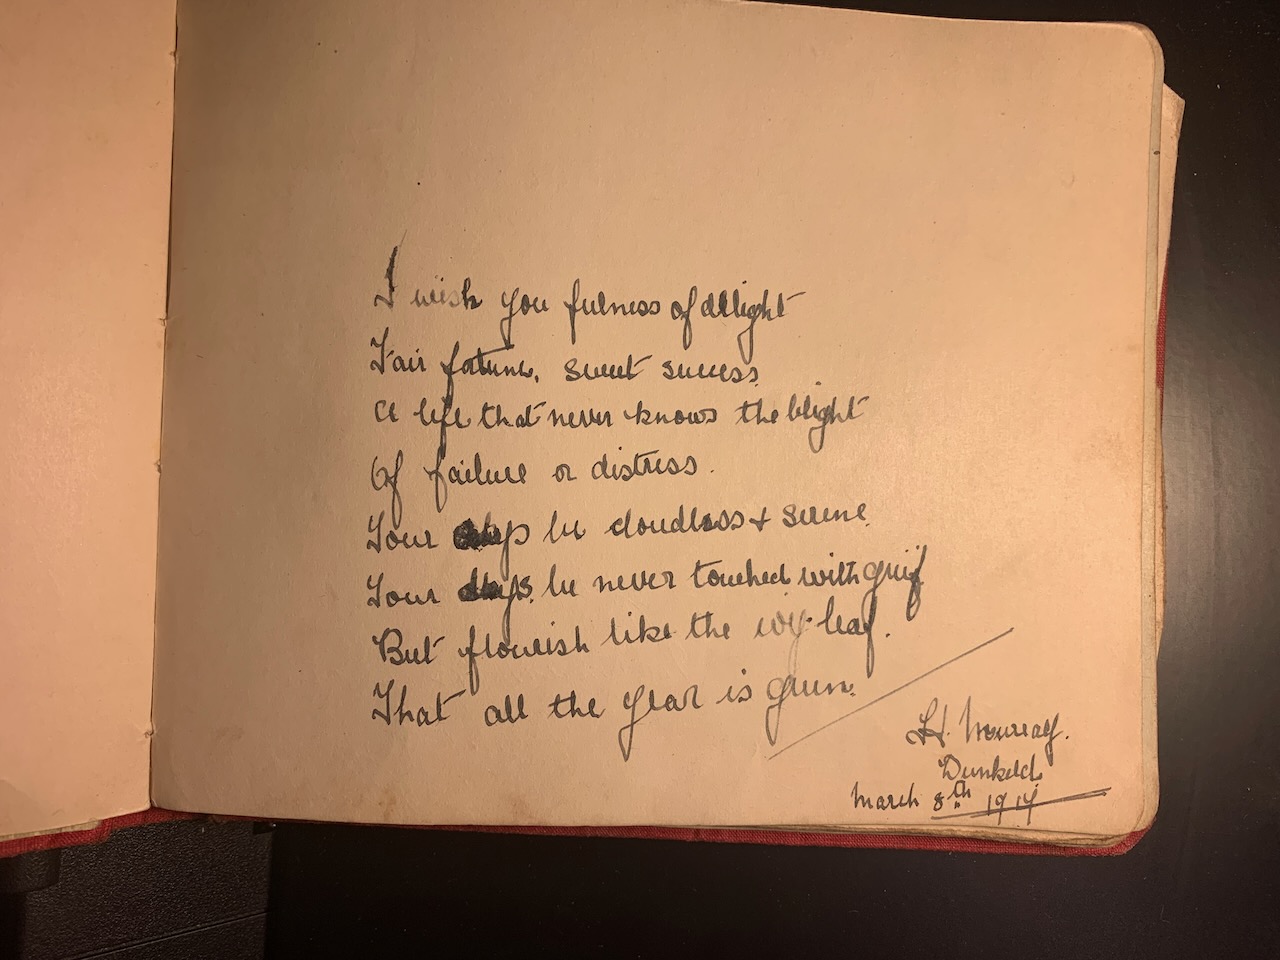 I wish you fulness of delight
Fair fortune, sweet success
A life that never knows the blight
Of failure or distress.
Your days be cloudless & serene
Your days be never touched with grief
But flourish like the ivy leaf.
That all the year is green.
H. Murray.
Dunkeld
March 8th 1914